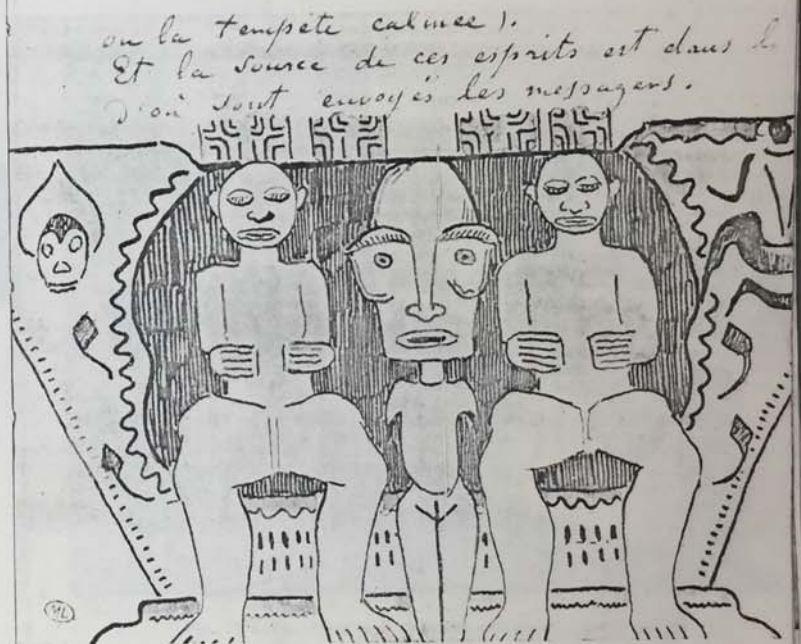 ou la tempete calmee).
Et la source de ces esprits est dans
D'où sont envoyés les messagers.